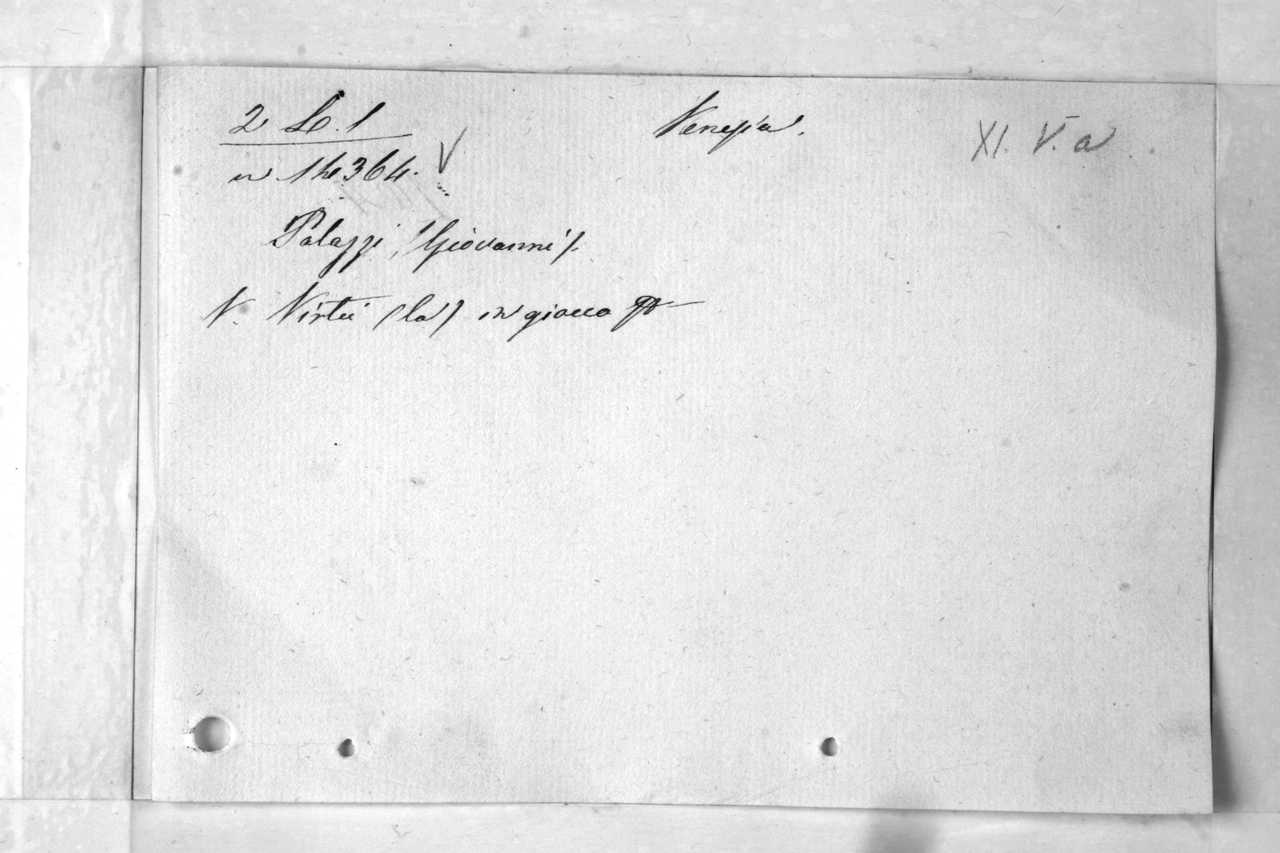 2 L. 1 Venezia. XI. V. a
n 14364. V
Palazzi, (Giovanni).
V. Virtù (la) in giocco